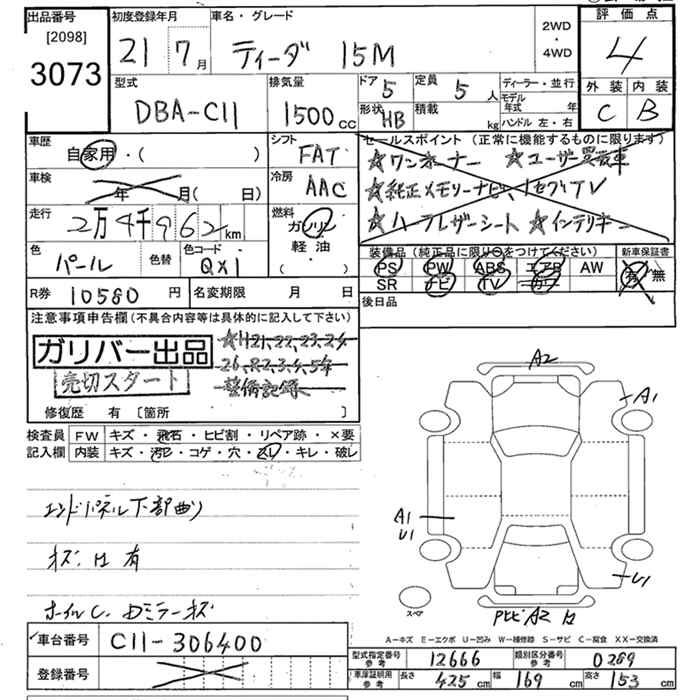 出品番号 初度登録年月 車名・グレード 2WD・4WD 評価点
[2098]
3073 21 7月 ティーダ 15M 4
型式 排気量 ドア 5 定員 5人 ディーラー・並行 外装 内装
DBA-C11 1500cc 形状 HB 積載 kg モデル年式 年 C B
ハンドル 左・右
車歴 シフト セールスポイント (正常に機能するものに限ります)
自家用・( ) FAT ☆ワンオーナー ☆ユーザー買取車
車検 冷房 ☆純正メモリーナビ、1セグTV
年 月( 日) AAC ☆ハーフレザーシート ☆インテリキー
走行 燃料
2万4千962km ガソリン
軽油
( )
色 色替 色コード 装備品 (純正品に限り○をつけてください) 新車保証書
パール QX1 PS PW ABS エアB AW 有・無
SR ナビ TV カワ
R券 10580円 名変期限 月 日 後日品
注意事項申告欄 (不具合内容等は具体的に記入して下さい)
ガリバー出品 ☆H21,22,23,24
売切スタート 26,R2,3,4,5年
整備記録
修復歴 有 [箇所 ]
検査員 FW キズ・飛石・ヒビ割・リペア跡・×要
記入欄 内装 キズ・汚レ・コゲ・穴・スレ・キレ・破レ
エンドパネル下部曲り
キズ、H 有
ホイルC、Dミラーキズ
A2
A1
A1
U1
U1
スペア
A2
A-キズ E-エクボ U-凹み W-補修跡 S-サビ C-腐食 XX-交換済
車台番号 C11-306400
登録番号
型式指定番号 参考 12666 類別区分番号 参考 0289
車庫証明用 参考 長さ 425cm 幅 169cm 高さ 153cm